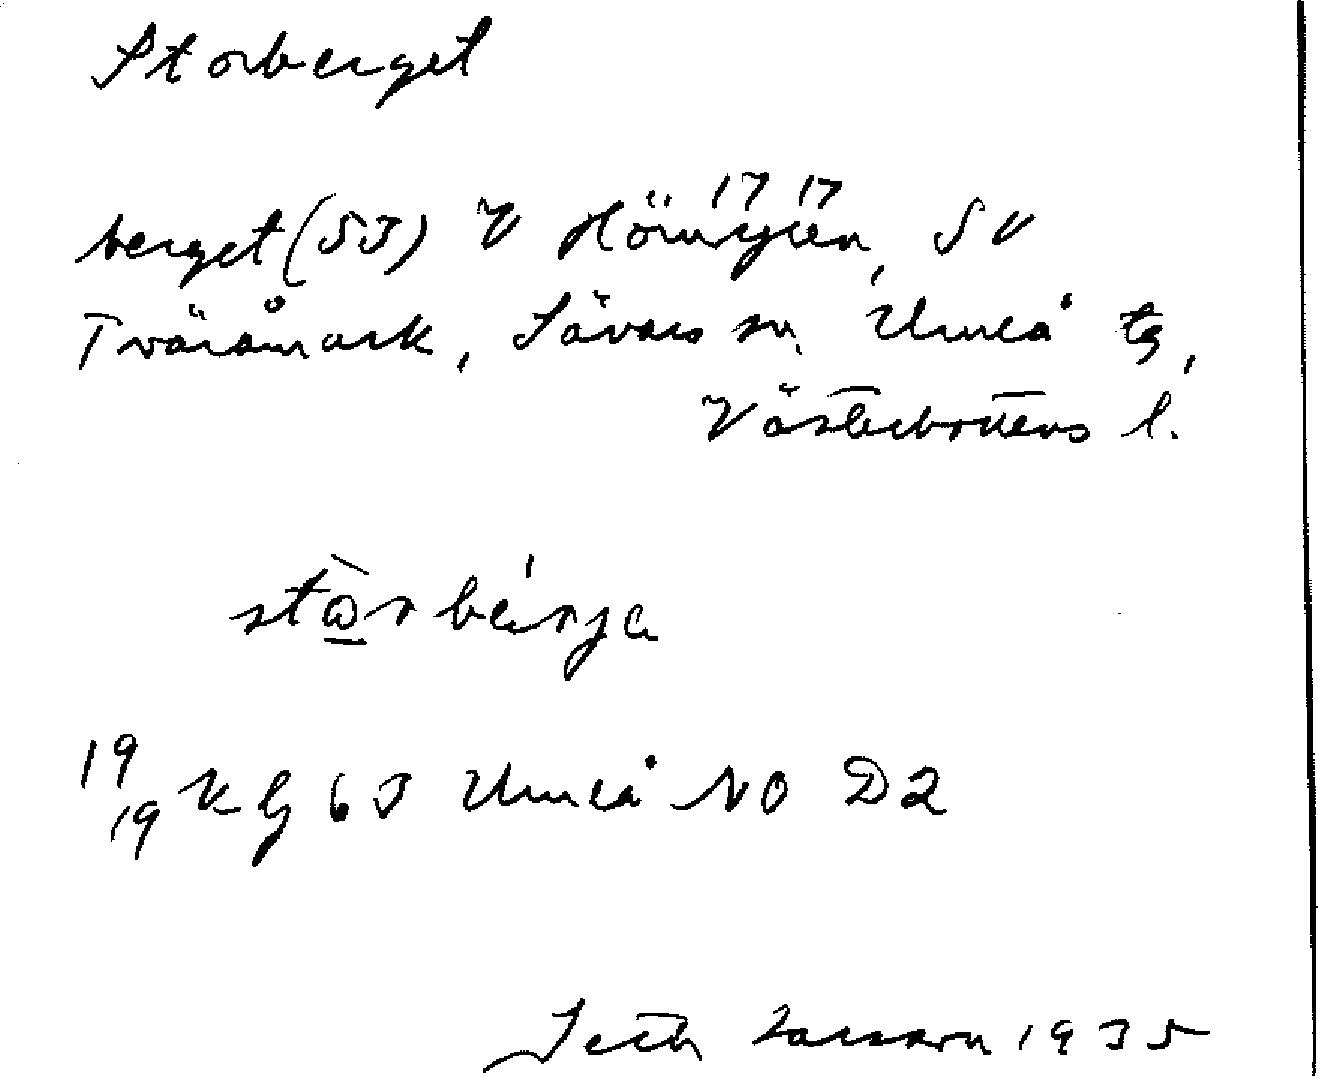 Storberget
17 17
berget (53) V Hörnsjön, SV
Tväråmark, Sävars sn, Umeå tg,
Västerbottens l.
stòrbérja
19
19 K bl 63 Umeå NO D2
Seth Larsson 1935